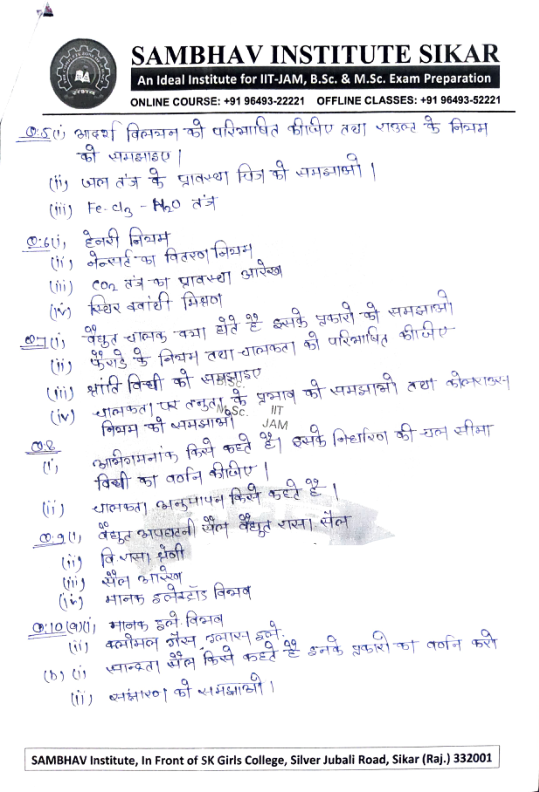 SAMBHAV INSTITUTE SIKAR
An Ideal Institute for IIT-JAM, B.Sc. & M.Sc. Exam Preparation
ONLINE COURSE: +91 96493-22221 OFFLINE CLASSES: +91 96493-52221
Q.5(i) आदर्श विलयन को परिभाषित कीजिए तथा राउल्ट के नियम
को समझाइए।
(ii) जल तंत्र के प्रावस्था चित्र को समझाओ।
(iii) Fe-Cl3 - H2O तंत्र
Q.6(i) हेनरी नियम
(ii) नेर्नस्ट का वितरण नियम
(iii) CO2 तंत्र का प्रावस्था आरेख
(iv) स्थिर क्वांथी मिश्रण
Q.7(i) वैद्युत चालक क्या होते है इसके प्रकारो को समझाओ
(ii) फैराडे के नियम तथा चालकता को परिभाषित कीजिए
(iii) श्रांति विधी को समझाइए
(iv) चालकता पर तनुता के प्रभाव को समझाओ तथा कोलराउस
नियम को समझाओ
M.Sc. IIT
JAM
Q.8
(i) अभिगमनांक किसे कहते है। इसके निर्धारण की चल सीमा
विधी का वर्णन कीजिए।
(ii) चालकता अनुमापन किसे कहते है।
Q.9(i) वैद्युत अपघटनी सैल वैद्युत रासा. सैल
(ii) वि.रासा. श्रेणी
(iii) सैल आरेख
(iv) मानक इलेक्ट्रॉड विभव
Q.10(a)(i) मानक इले. विभव
(ii) क्लोमल गैस, ग्लास इले.
(b) (i) सान्द्रता सैल किसे कहते है इनके प्रकारो का वर्णन करो
(ii) संक्षारण को समझाओ।
SAMBHAV Institute, In Front of SK Girls College, Silver Jubali Road, Sikar (Raj.) 332001